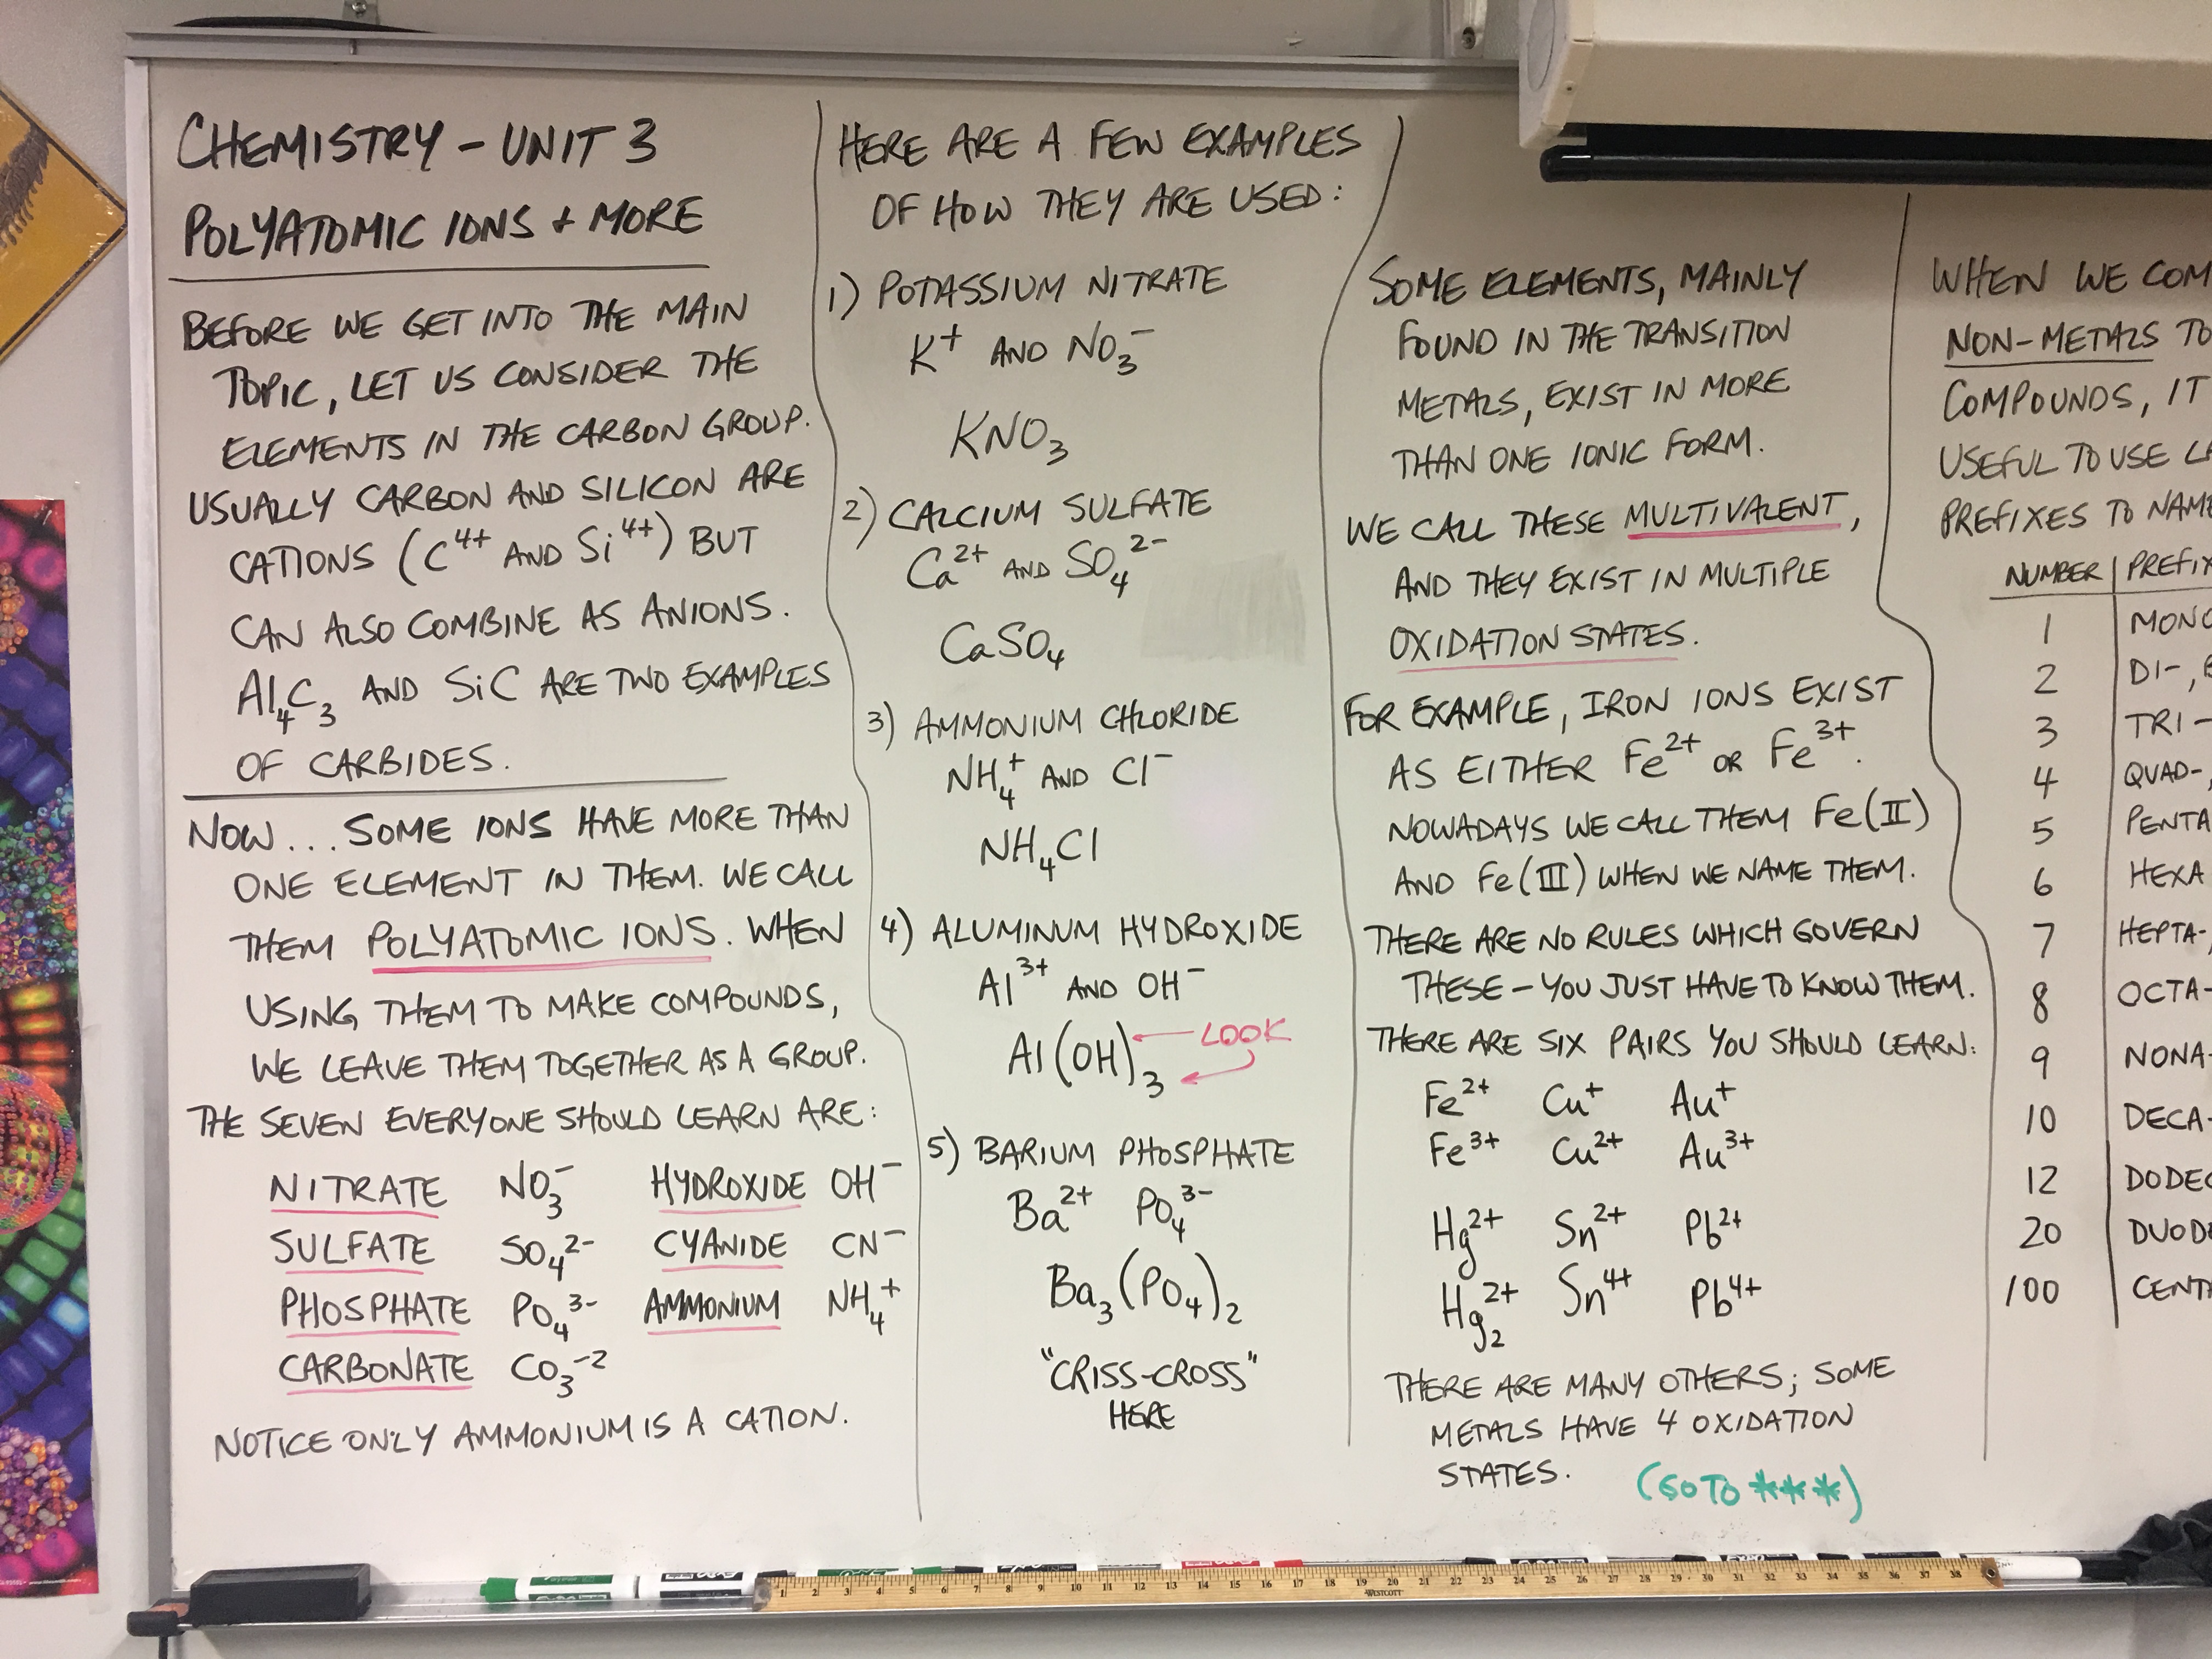 CHEMISTRY - UNIT 3
POLYATOMIC IONS + MORE
BEFORE WE GET INTO THE MAIN
TOPIC, LET US CONSIDER THE
ELEMENTS IN THE CARBON GROUP.
USUALLY CARBON AND SILICON ARE
CATIONS (C⁴⁺ AND Si⁴⁺) BUT
CAN ALSO COMBINE AS ANIONS.
Al₄C₃ AND SiC ARE TWO EXAMPLES
OF CARBIDES.
NOW... SOME IONS HAVE MORE THAN
ONE ELEMENT IN THEM. WE CALL
THEM POLYATOMIC IONS. WHEN
USING THEM TO MAKE COMPOUNDS,
WE LEAVE THEM TOGETHER AS A GROUP.
THE SEVEN EVERYONE SHOULD LEARN ARE:
NITRATE NO₃⁻ HYDROXIDE OH⁻
SULFATE SO₄²⁻ CYANIDE CN⁻
PHOSPHATE PO₄³⁻ AMMONIUM NH₄⁺
CARBONATE CO₃⁻²
NOTICE ONLY AMMONIUM IS A CATION.
HERE ARE A FEW EXAMPLES
OF HOW THEY ARE USED:
1) POTASSIUM NITRATE
K⁺ AND NO₃⁻
KNO₃
2) CALCIUM SULFATE
Ca²⁺ AND SO₄²⁻
CaSO₄
3) AMMONIUM CHLORIDE
NH₄⁺ AND Cl⁻
NH₄Cl
4) ALUMINUM HYDROXIDE
Al³⁺ AND OH⁻
Al(OH)₃ LOOK
5) BARIUM PHOSPHATE
Ba²⁺ PO₄³⁻
Ba₃(PO₄)₂
"CRISS-CROSS"
HERE
SOME ELEMENTS, MAINLY
FOUND IN THE TRANSITION
METALS, EXIST IN MORE
THAN ONE IONIC FORM.
WE CALL THESE MULTIVALENT,
AND THEY EXIST IN MULTIPLE
OXIDATION STATES.
FOR EXAMPLE, IRON IONS EXIST
AS EITHER Fe²⁺ OR Fe³⁺.
NOWADAYS WE CALL THEM Fe(II)
AND Fe(III) WHEN WE NAME THEM.
THERE ARE NO RULES WHICH GOVERN
THESE - YOU JUST HAVE TO KNOW THEM.
THERE ARE SIX PAIRS YOU SHOULD LEARN:
Fe²⁺ Cu⁺ Au⁺
Fe³⁺ Cu²⁺ Au³⁺
Hg²⁺ Sn²⁺ Pb²⁺
Hg₂²⁺ Sn⁴⁺ Pb⁴⁺
THERE ARE MANY OTHERS; SOME
METALS HAVE 4 OXIDATION
STATES.
(GO TO ***)
WHEN WE COM
NON-METALS TO
COMPOUNDS, IT
USEFUL TO USE
PREFIXES TO NAME
NUMBER PREFIX
1 MONO
2 DI-,
3 TRI-
4 QUAD-,
5 PENTA
6 HEXA
7 HEPTA-,
8 OCTA-
9 NONA-
10 DECA-
12 DODEC
20 DUODE
100 CENT
1 2 3 4 5 6 7 8 9 10 11 12 13 14 15 16 17 18 19 20 21 22 23 24 25 26 27 28 29 30 31 32 33 34 35 36 37 38
WESTCOTT